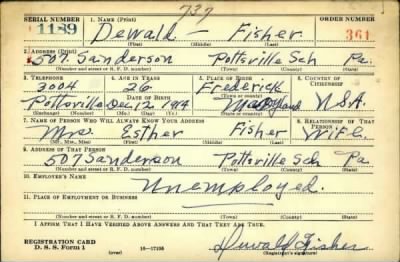 737
SERIAL NUMBER 1. NAME (Print) ORDER NUMBER
1189 Dewald — Fisher 361
(First) (Middle) (Last)
2. ADDRESS (Print)
507. Sanderson Pottsville Sch Pa.
(Number and street or R. F. D. number) (Town) (County) (State)
3. TELEPHONE 4. AGE IN YEARS 5. PLACE OF BIRTH 6. COUNTRY OF CITIZENSHIP
3004 26 Frederick
DATE OF BIRTH (Town or county)
Pottsville Dec 12 1914 Maryland U.S.A.
(Exchange) (Number) (Mo.) (Day) (Yr.) (State or country)
7. NAME OF PERSON WHO WILL ALWAYS KNOW YOUR ADDRESS 8. RELATIONSHIP OF THAT PERSON
Mrs. Esther Fisher Wife.
(Mr., Mrs., Miss) (First) (Middle) (Last)
9. ADDRESS OF THAT PERSON
507 Sanderson Pottsville Sch Pa
(Number and street or R. F. D. number) (Town) (County) (State)
10. EMPLOYER'S NAME
Unemployed.
11. PLACE OF EMPLOYMENT OR BUSINESS
(Number and street or R. F. D. number) (Town) (County) (State)
I AFFIRM THAT I HAVE VERIFIED ABOVE ANSWERS AND THAT THEY ARE TRUE.
REGISTRATION CARD
D. S. S. Form 1 (over) 16—17105 Dewald Fisher
(Registrant's signature)